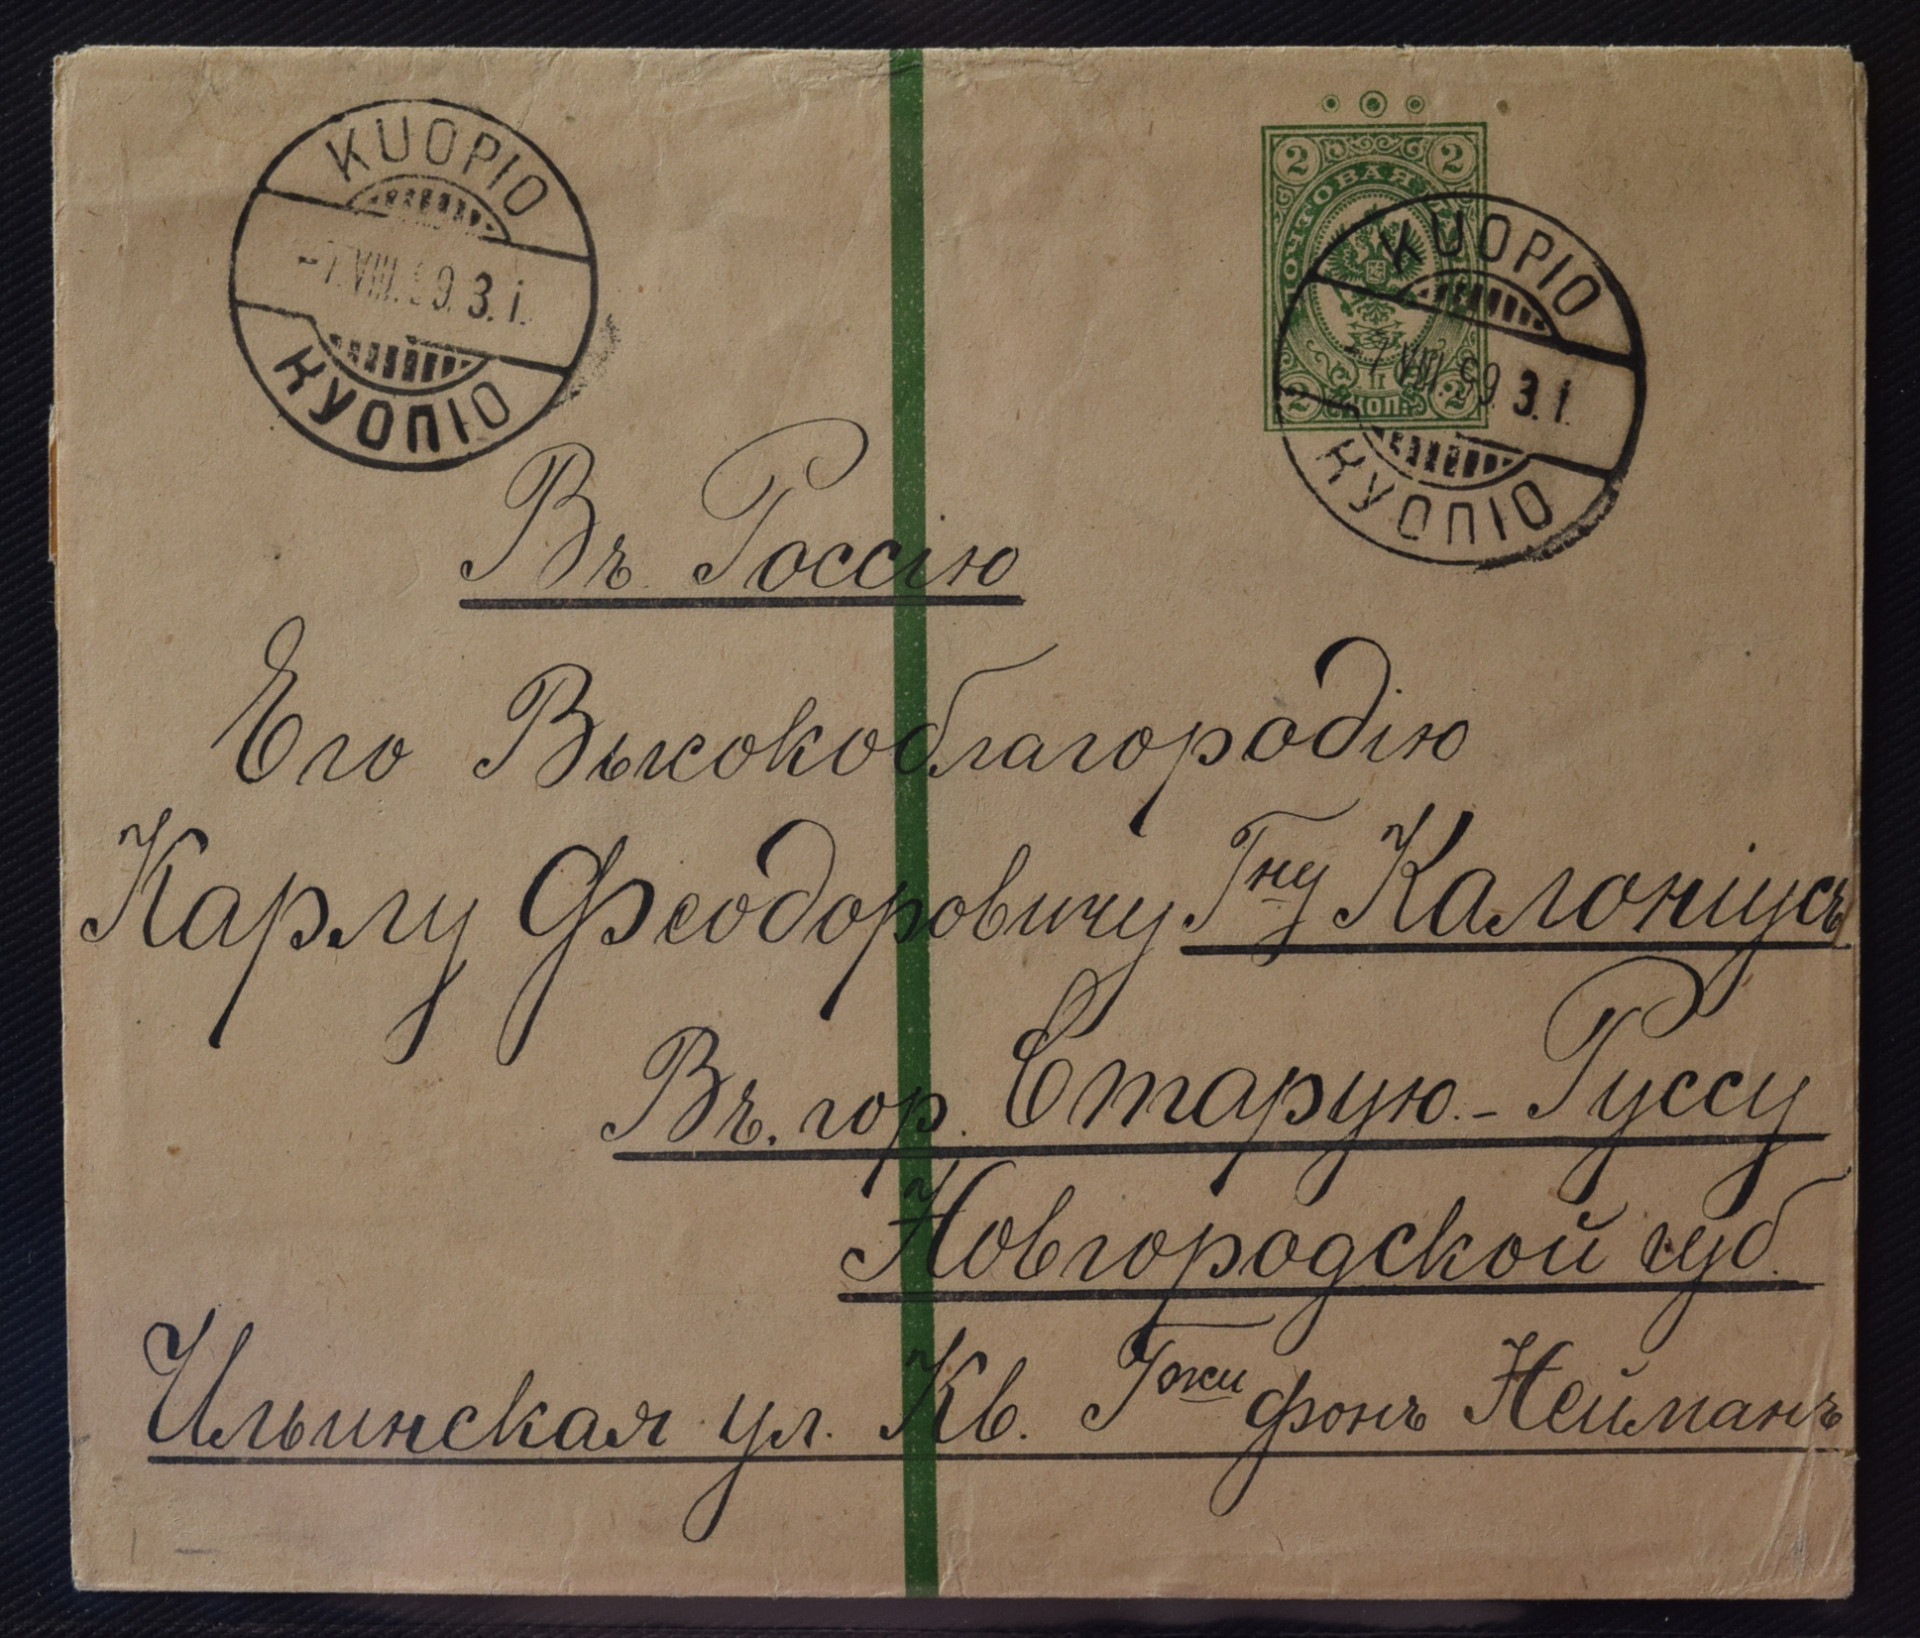 KUOPIO
-7.VIII.99. 3.i.
КУОПІО
2 2
ПОЧТОВАЯ
KUOPIO
-7.VIII.99. 3.i.
2 КОП. 2
КУОПІО
Въ Россію
Его Высокоблагородію
Карлу Феодоровичу Гну Калоніусъ
Въ. гор. Старую - Руссу
Новгородской губ.
Ильинская ул. Кв. Гжи фонъ Нейманъ